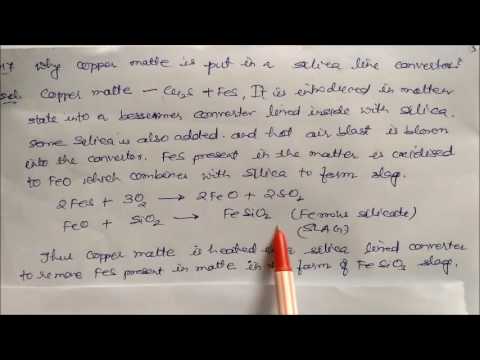 17. Why copper matte is put in a silica line converters?
Sol. Copper matte — Cu2S + FeS, It is introduced in molten
state into a bessemer converter lined inside with silica.
Some silica is also added. and hot air blast is blown
into the convertor. FeS present in the matter is oxidised
to FeO which combines with silica to form slag.
2FeS + 3O2 → 2FeO + 2SO2
FeO + SiO2 → FeSiO2 (Ferrous silicate)
(SLAG)
Thus copper matte is heated silica lined converter
to remove FeS present in matte in form of FeSiO3 slag.